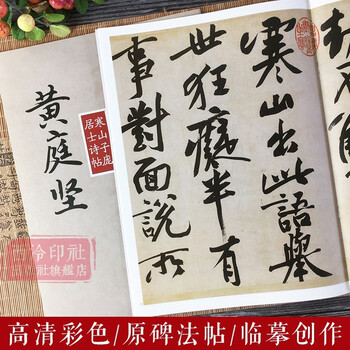 黄庭坚
寒山子庞
居士诗帖
寒山出此語舉
世狂癡半有
事對面說所
泠印社
社旗舰店
高清彩色/原碑法帖/临摹创作